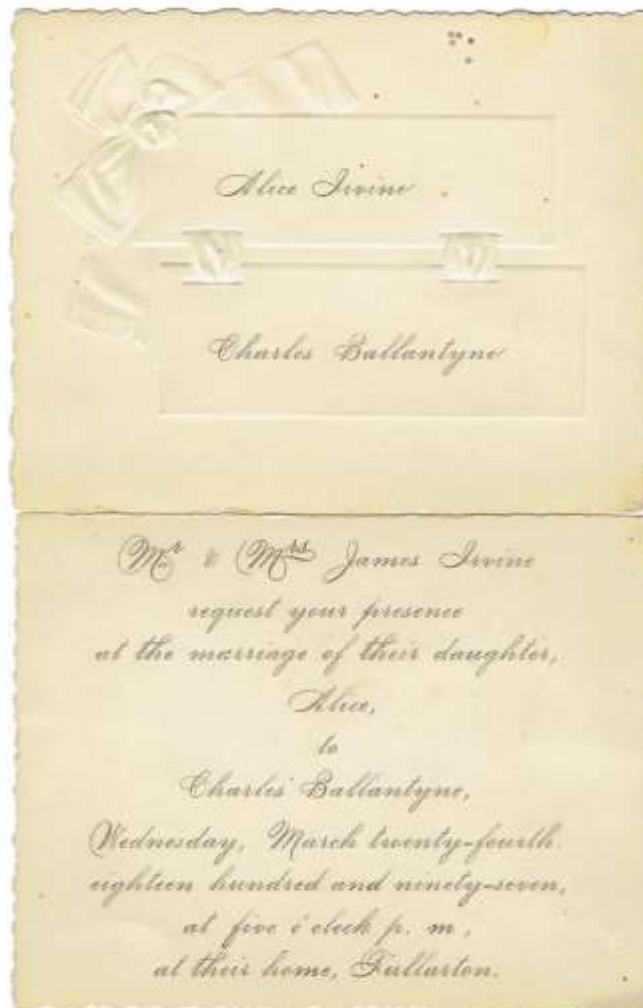 Alice Irvine
Charles Ballantyne
Mr & Mrs James Irvine
request your presence
at the marriage of their daughter,
Alice,
to
Charles Ballantyne,
Wednesday, March twenty-fourth.
eighteen hundred and ninety-seven,
at five o'clock p. m.,
at their home, Fullarton.